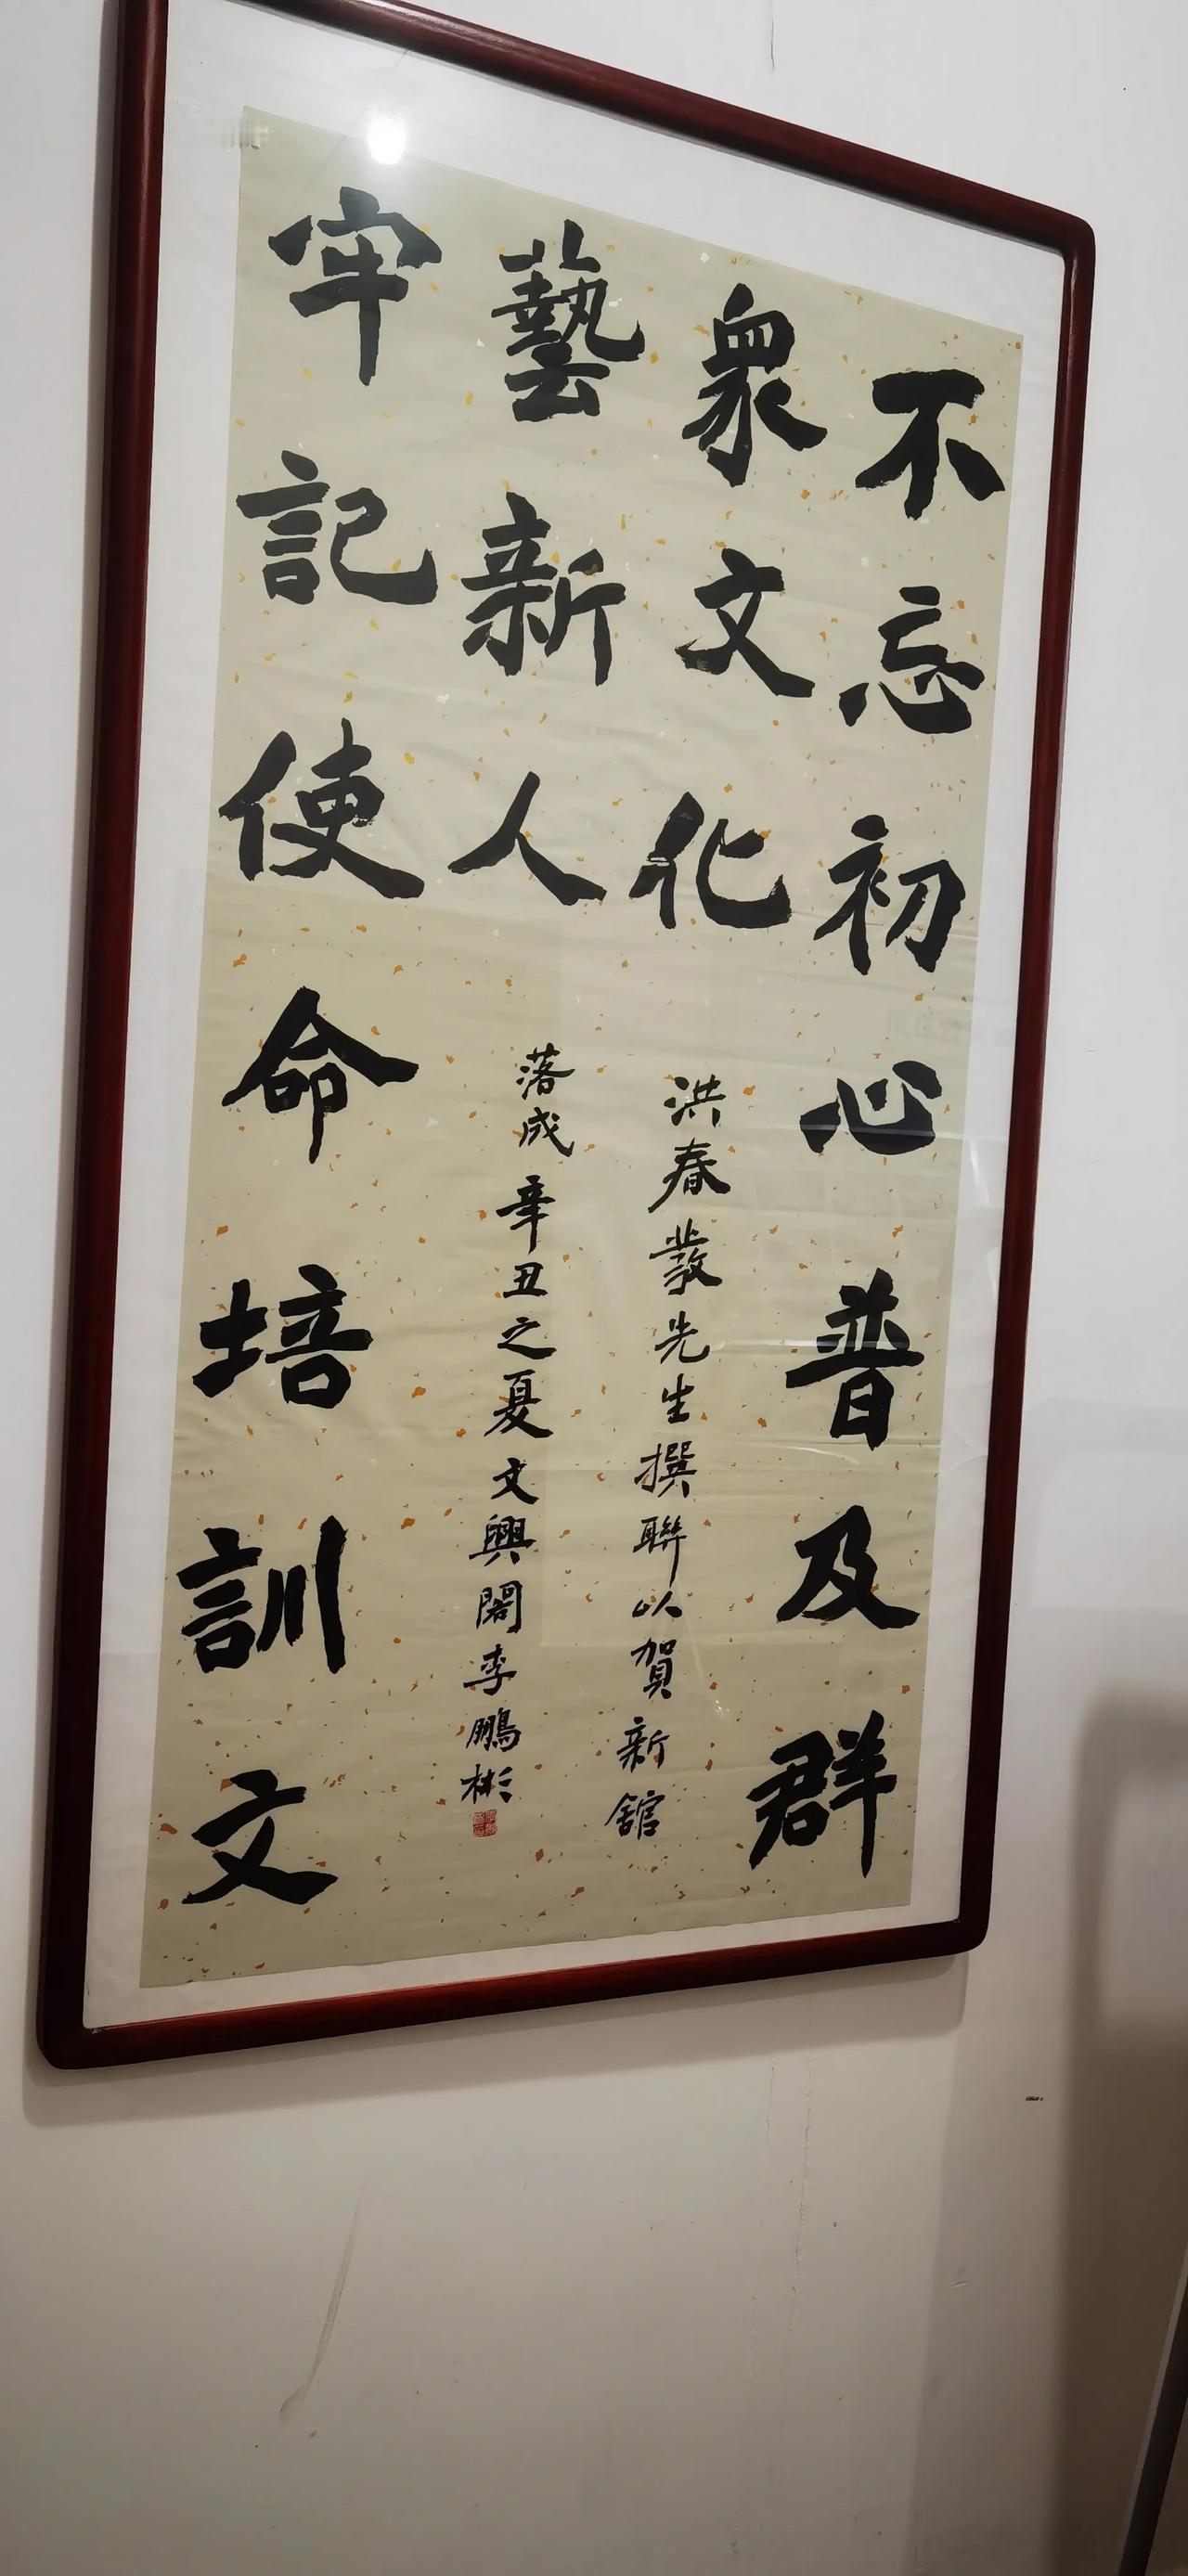 不忘初心普及群
眾文化
牢記使命培訓文
藝新人
洪春先生撰聯以賀新舘
落成辛丑之夏文興閣李鵬彬